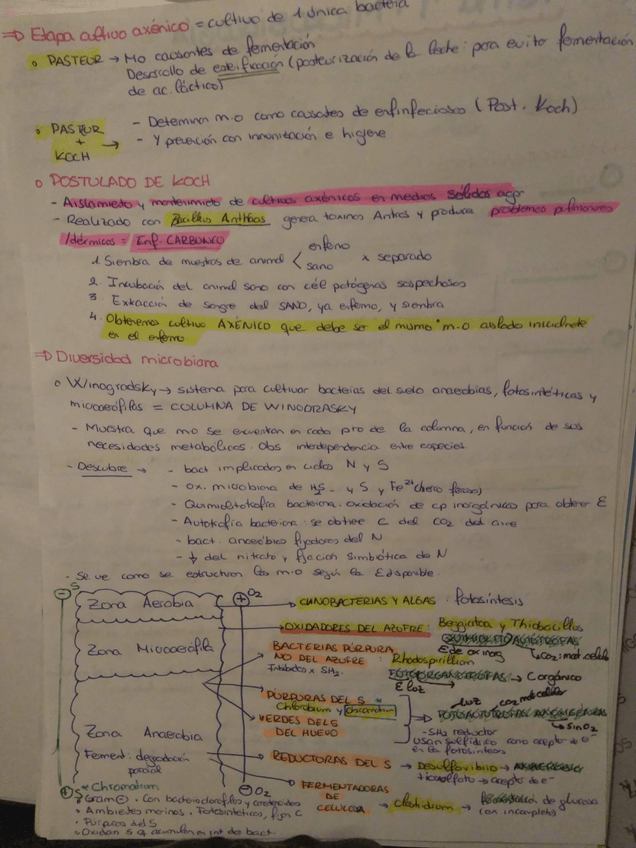 ⇒ Etapa cultivo axénico = cultivo de 1 única bacteria
◦ PASTEUR → Mo causantes de fermentación
Desarrollo de esterificación (pasteurización de la leche: para evitar fermentación
de ac. láctico)
◦ PASTEUR + KOCH → - Determinan m.o como causantes de enf infecciosas (Post. Koch)
- Y prevención con inmunización e higiene
◦ POSTULADO DE KOCH
- Aislamiento y mantenimiento de cultivos axénicos en medios sólidos agar
- Realizado con Bacillus Anthracis genera toxinas Antrax y produce problemas pulmonares
/dérmicos = Enf. CARBUNCO
1. Siembra de muestras de animal < enfermo sano x separado
2. Incubación del animal sano con cél patógenas sospechosas
3. Extracción de sangre del SANO, ya enfermo, y siembra
4. Obtenemos cultivo AXÉNICO que debe ser el mismo m.o aislado inicialmente
en el enfermo
⇒ Diversidad microbiana
◦ Winogradsky → sistema para cultivar bacterias del suelo anaerobias, fotosintéticas y
microaerófilas = COLUMNA DE WINODRASKY
- Muestra que mo se encuentran en cada pto de la columna, en función de sus
necesidades metabólicas. Obs interdependencia entre especies
- Descubre → - bact implicadas en ciclos N y S
- ox. microbiana de H₂S y S y Fe²⁺ (hierro ferroso)
- Quimiolitotrofia bacteriana: oxidación de cp inorgánicos para obtener E
- Autotrofia bacteriana: se obtiene C del CO₂ del aire
- bact. anaerobias fijadoras del N
- ↓ del nitrato y fijación simbiótica de N
· Se ve como se estructuran los m.o según la E disponible.
⊖ S
⊕ O₂
Zona Aerobia
→ CIANOBACTERIAS Y ALGAS: fotosíntesis
→ OXIDADORES DEL AZUFRE: Beggiatoa y Thiobacillus
E de ox inorg
CO₂: mat. celular
Zona Microaerófila
BACTERIAS PÚRPURA
NO DEL AZUFRE: Rhodospirillum
Inhibidas x SH₂
FOTOORGANOTROFAS → C orgánico
E luz
→ PÚRPURAS DEL S *
Chlorobium y Chromatium
luz CO₂ mat celular
Sin O₂
→ VERDES DEL S
DEL HUEVO
-SH₂ reductor
Usan sulfídrico como aceptor de e⁻
en la fotosíntesis
Zona Anaerobia
Ferment: degradación
parcial
→ REDUCTORAS DEL S → Desulfovibrio →
tiosulfato → aceptor de e⁻
→ FERMENTADORAS
DE
CELULOSA → Clostridium → de glucosa
(ox incompleta)
⊕ S
⊖ O₂
* Chromatium
Gram ⊖. Con bacterioclorofilas y carotenoides
• Ambientes marinos. Fotosintéticos, fijan C
• Púrpuras del S
◦ Oxidan S q acumulan en int de bact